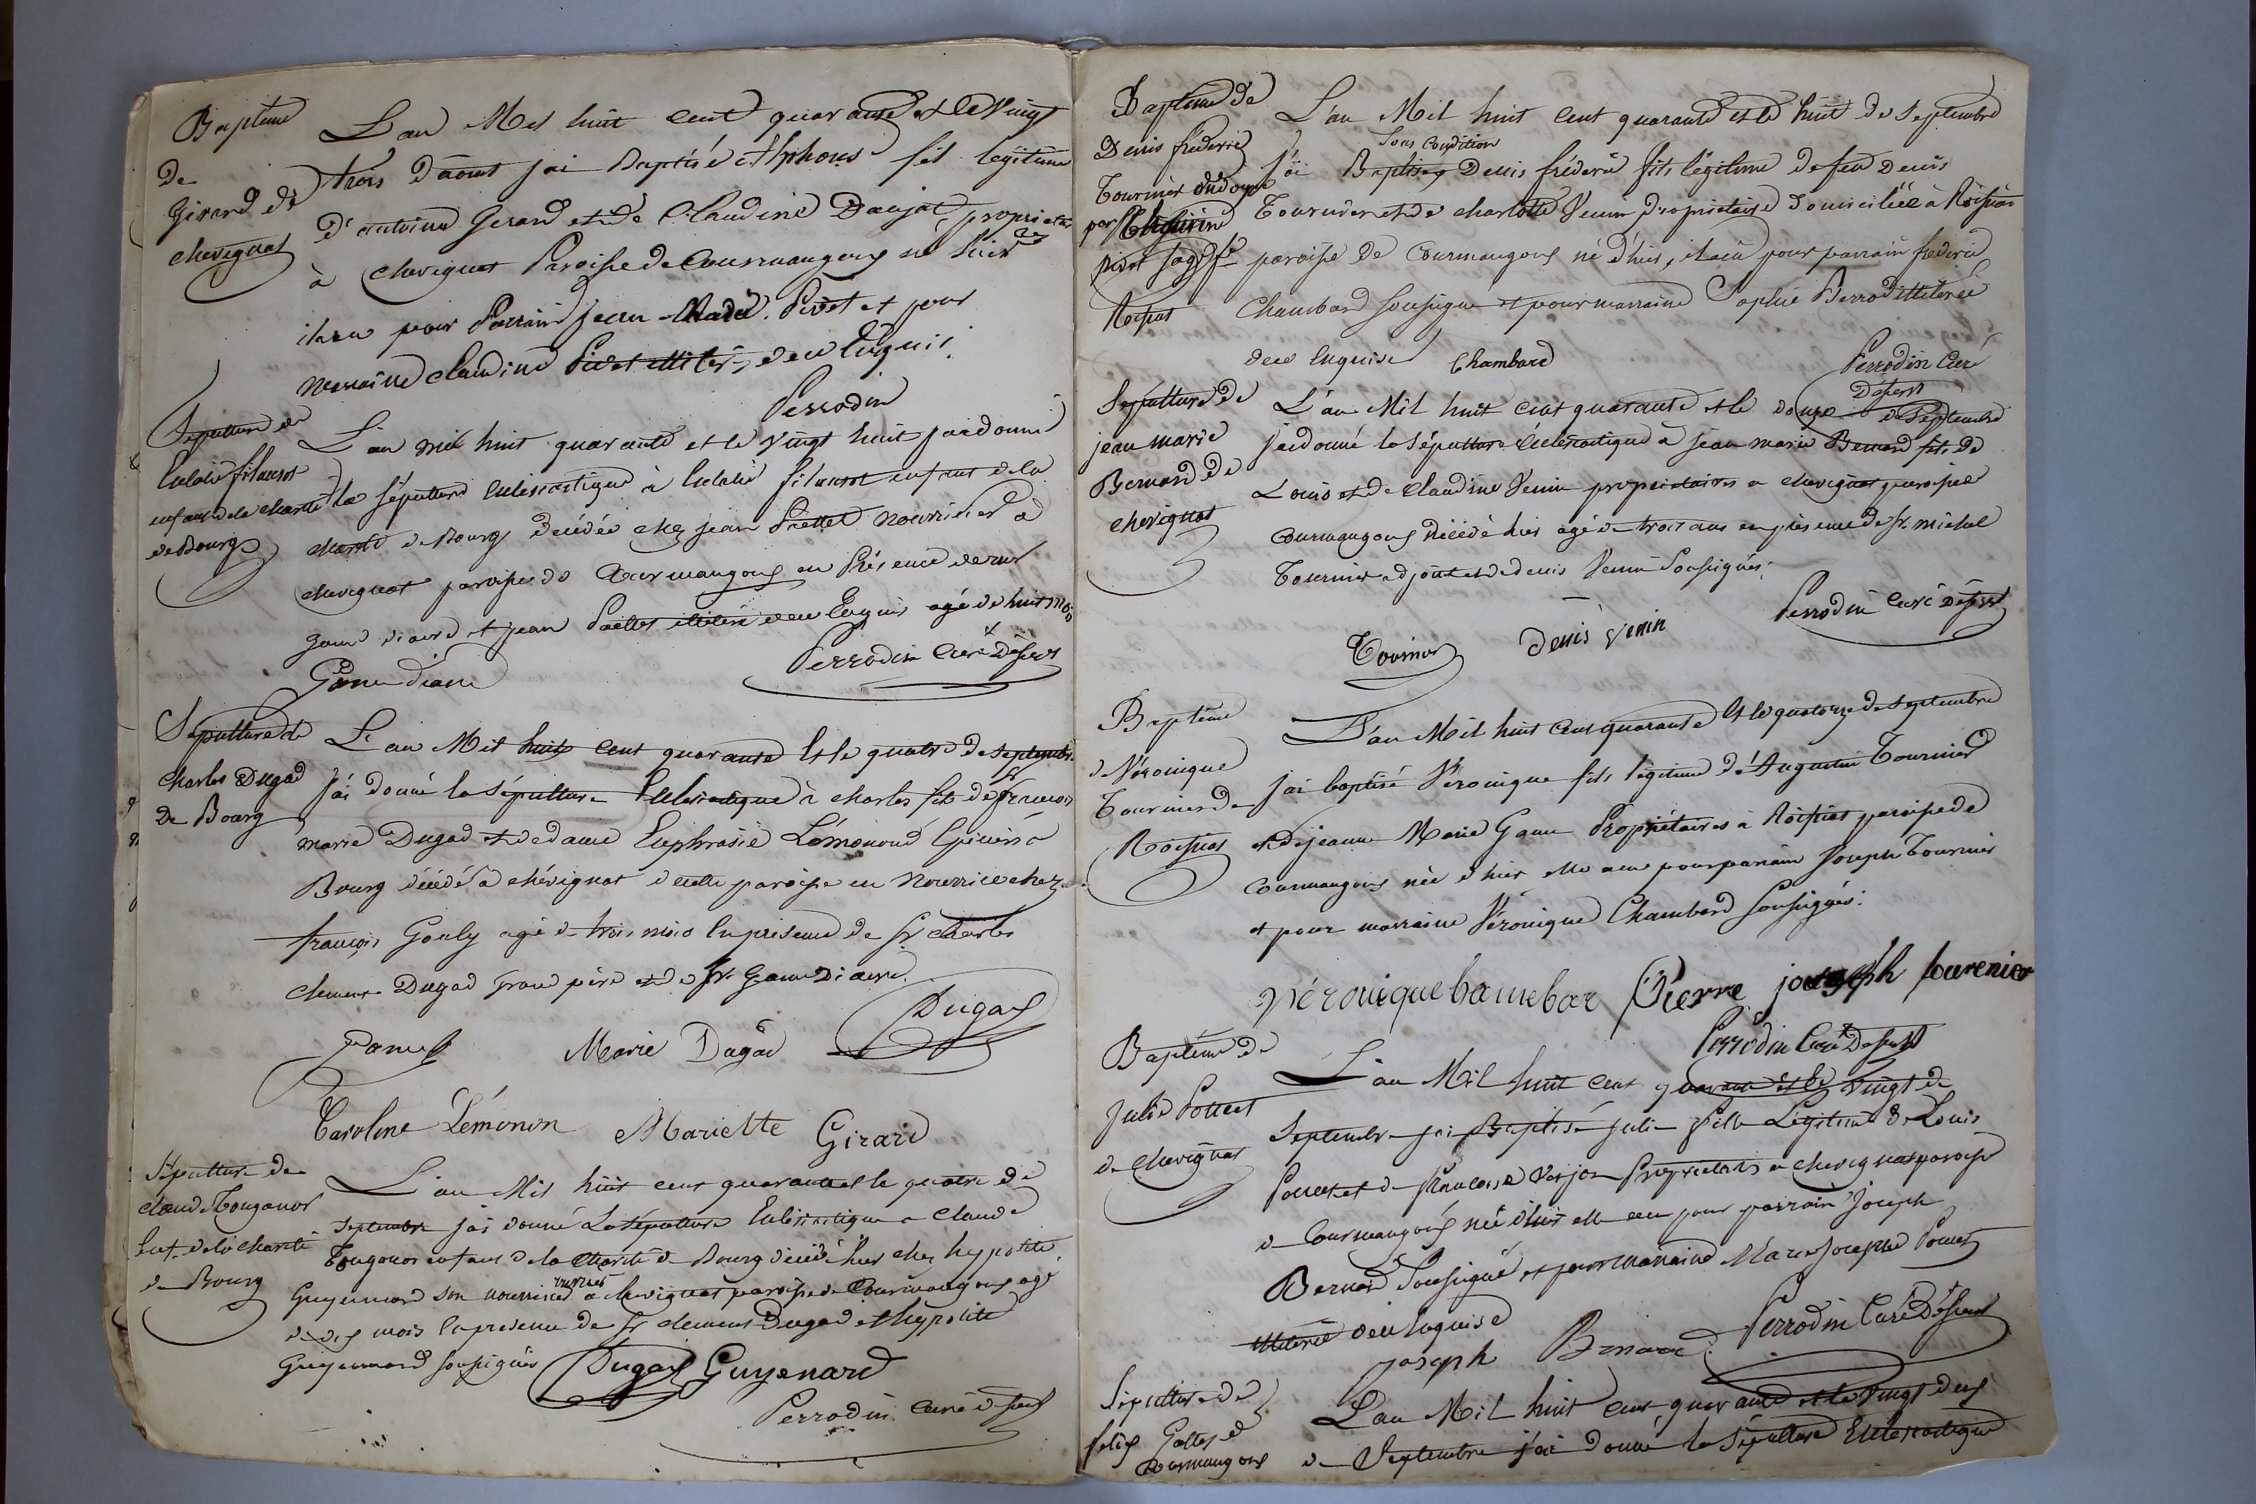 Baptême
de
Girard de
chevignat
L'an Mil huit cent quarante et le vingt
trois d'aout jai Baptisé Alphonse fils légitime
d'antoine Gerard et de Claudine Daujat propriétaires
à chevignat Paroisse de Courmangoux né hier
il a eu pour Parrain jean Marie Pivet et pour
marraine claudine Pivet illiterés de ce Enquis.
Perrodin
Sépulture de
Eulalie filausot
enfant de la charité
de Bourg
L'an mil huit quarante et le vingt huit jai donné
la sépulture Ecclésiastique à Eulalie filausot enfant de la
charité de Bourg décédée chez jean Piettet nourricier à
chevignat paroisse de Courmangoux en Présence de mr
game diacre et jean Piettet illiteré de ce Enquis agé de huit mois
Perrodin Curé Dessert
Game diacre
Sépulture de
Charles Dugad
De Bourg
L'an Mil huit cent quarante Et le quatre de septembre
j'ai donné la sépulture Ecclésiastique à charles fils de sr françois
marie Dugad et de dame Euphrasie Lémonond Epiciers à
Bourg décédé à chévignat de cette paroisse en Nourrice chez
françois Gouly agé de trois mois En présence de sr charles
clement Dugad Grand père et de sr Game Diacre.
Dugad
Game Marie Dugad
Caroline Lémonon Mariette Girard
Sépulture de
claude Touganos
Enf. de la charité
de Bourg
L'an Mil huit cent quarante et le quatre de
septembre j'ai donné La sépulture Ecclésiastique a Claude
Tougonos enfant de la charité de Bourg décédé hier chez hyppolite
Guyennard son nourricier à chevignat paroisse de Courmangoux agé
de dix mois En présence de sr clement Dugad et hyppolite
Guyennard soussignés Dugad Guyenard
Perrodin Curé dessert
Baptême de
Denis frédéric
Tournier ondoyé
par
pivet sage fe
Roissiat
L'an Mil huit cent quarante et le huit de septembre
sous condition
j'ai Baptisé Denis fréderic fils légitime de feu Denis
Tournier et de charlotte Venin propriétaire domiciliée à Roissiat
paroisse de Courmangoux né d'hier, il a eu pour parrain frédéric
Chambard soussigné et pour marraine Sophie Perrod illiterée
de ce Enquise Chambard Perrodin Curé
Dessert
Sépulture de
jean marie
Bernard de
chevignat
L'an Mil huit cent quarante et le douze de septembre
j'ai donné la Sépulture Ecclésiastique à jean marie Bernard fils de
Louis et de Claudine Venin propriétaires a chevignat paroisse
Courmangoux décédé hier agé de trois ans en présence de sr michel
Tournier adjoint et de denis Venin Soussignés.
Tournier Denis Venin Perrodin Curé Dessert
Baptême
de Véronique
Tournier de
Roissiat
L'an Mil huit cent quarante Et le quatorze de septembre
jai baptisé Véronique fils légitime d'Augustin Tournier
et de jeanne Marie Game Propriétaires à Roissiat paroisse de
Courmangoux née d'hier elle a eu pour parrain Joseph Tournier
et pour marraine Véronique Chambard soussignés.
Véronique bamebar Pierre joseph tourenier
Perrodin Curé Dessert
Baptême de
Julie Pouet
de chevignat
L'an Mil huit cent quarante Et le vingt de
Septembre jai Baptisé Julie fille Légitime de Louis
Pouet et de françoise Verjon Propriétaires a chevignat paroisse
de Courmangoux née d'hier elle a eu pour parrain Joseph
Bernard Soussigné et pour marraine Marie Josephe Pouet
illiterée de ce Enquise
Joseph Benard. Perrodin Curé Dessert
Sépulture de
felix Goltex de
Courmangoux
L'an Mil huit cent quarante et le vingt deux
de Septembre j'ai donné la sépulture Ecclésiastique